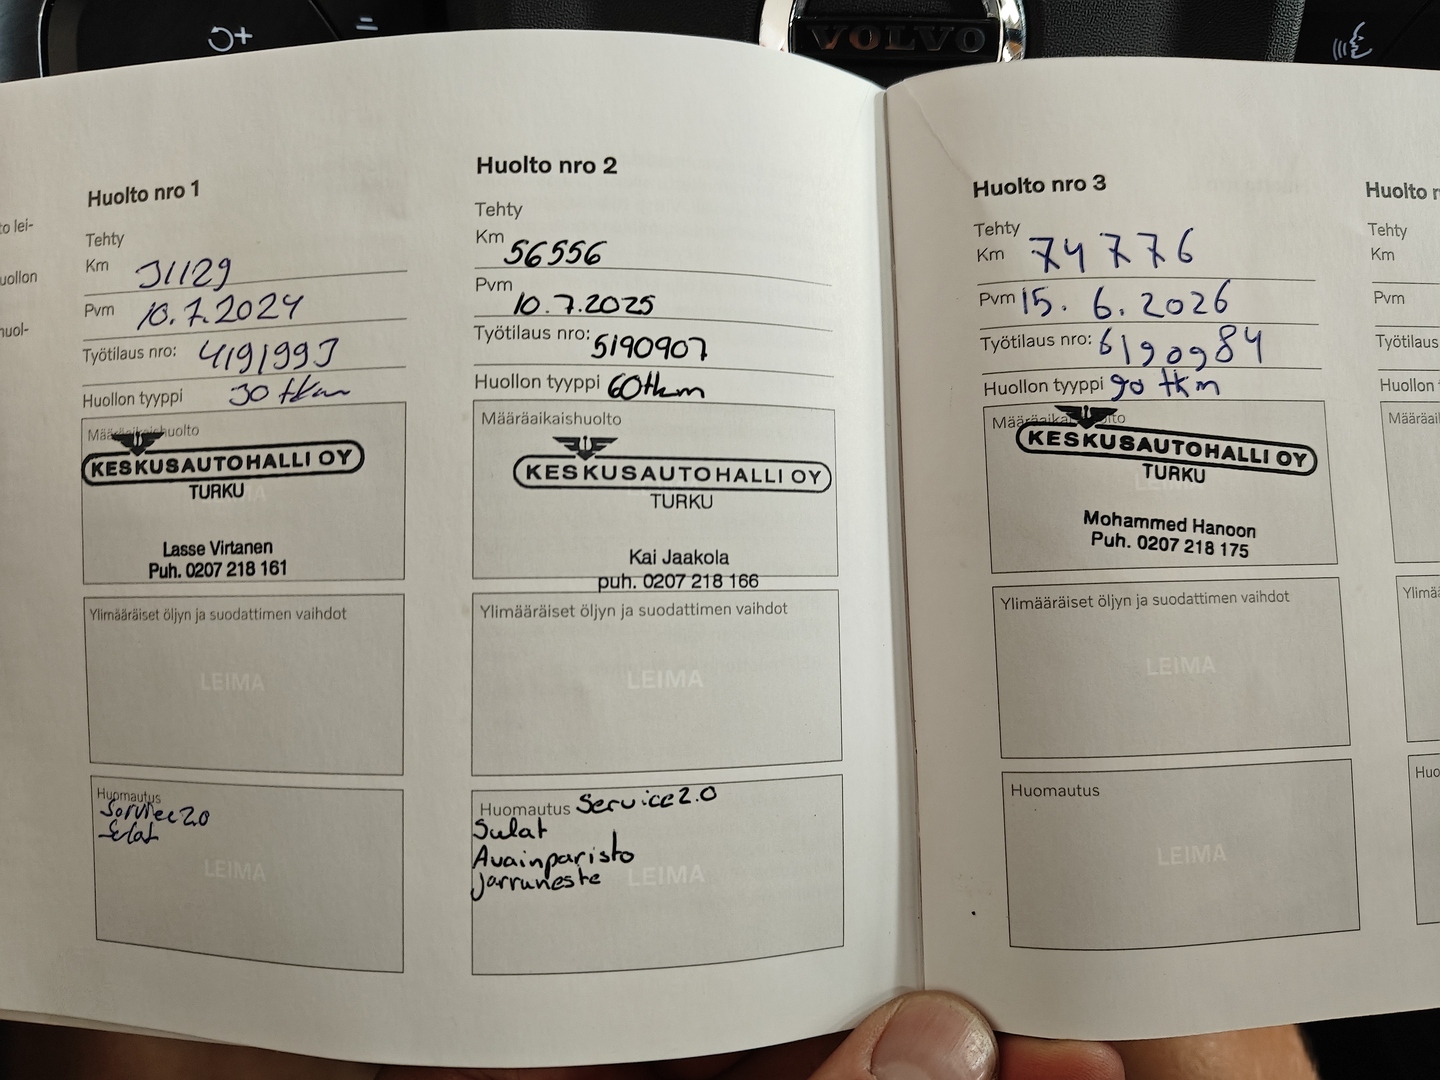 VOLVO
to lei-
uollon
huol-
Huolto nro 1
Tehty
Km 31129
Pvm 10.7.2024
Työtilaus nro: 4191993
Huollon tyyppi 30 tkm
Määräaikaishuolto
KESKUSAUTOHALLI OY
TURKU
Lasse Virtanen
Puh. 0207 218 161
Ylimääräiset öljyn ja suodattimen vaihdot
LEIMA
Huomautus
Service 2.0
Sulat
LEIMA
Huolto nro 2
Tehty
Km 56556
Pvm 10.7.2025
Työtilaus nro: 5190907
Huollon tyyppi 60tkm
Määräaikaishuolto
KESKUSAUTOHALLI OY
TURKU
Kai Jaakola
puh. 0207 218 166
Ylimääräiset öljyn ja suodattimen vaihdot
LEIMA
Huomautus Service 2.0
Sulat
Avainparisto
Jarruneste
LEIMA
Huolto nro 3
Tehty
Km 74776
Pvm 15.6.2026
Työtilaus nro: 6190984
Huollon tyyppi 90 tkm
Määräaikaishuolto
KESKUSAUTOHALLI OY
TURKU
Mohammed Hanoon
Puh. 0207 218 175
Ylimääräiset öljyn ja suodattimen vaihdot
LEIMA
Huomautus
LEIMA
Huolto n
Tehty
Km
Pvm
Työtilaus
Huollon t
Määräail
Ylimää
Huo